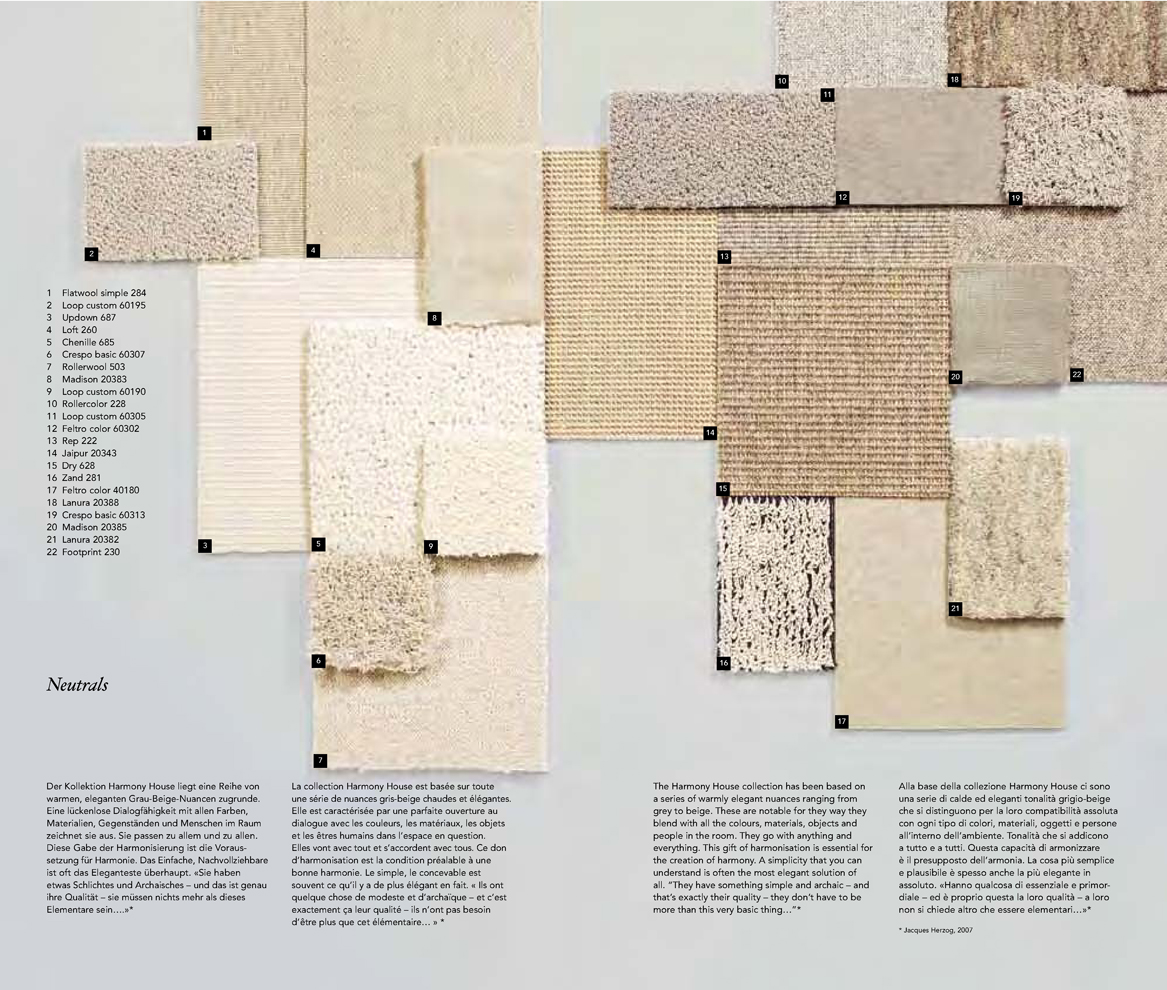 10
18
11
1
12
19
2
4
13
8
20
22
14
15
3
5
9
21
6
16
17
7
1 Flatwool simple 284
2 Loop custom 60195
3 Updown 687
4 Loft 260
5 Chenille 685
6 Crespo basic 60307
7 Rollerwool 503
8 Madison 20383
9 Loop custom 60190
10 Rollercolor 228
11 Loop custom 60305
12 Feltro color 60302
13 Rep 222
14 Jaipur 20343
15 Dry 628
16 Zand 281
17 Feltro color 40180
18 Lanura 20388
19 Crespo basic 60313
20 Madison 20385
21 Lanura 20382
22 Footprint 230
Neutrals
Der Kollektion Harmony House liegt eine Reihe von
warmen, eleganten Grau-Beige-Nuancen zugrunde.
Eine lückenlose Dialogfähigkeit mit allen Farben,
Materialien, Gegenständen und Menschen im Raum
zeichnet sie aus. Sie passen zu allem und zu allen.
Diese Gabe der Harmonisierung ist die Voraus-
setzung für Harmonie. Das Einfache, Nachvollziehbare
ist oft das Eleganteste überhaupt. «Sie haben
etwas Schlichtes und Archaisches – und das ist genau
ihre Qualität – sie müssen nichts mehr als dieses
Elementare sein….»*
La collection Harmony House est basée sur toute
une série de nuances gris-beige chaudes et élégantes.
Elle est caractérisée par une parfaite ouverture au
dialogue avec les couleurs, les matériaux, les objets
et les êtres humains dans l'espace en question.
Elles vont avec tout et s'accordent avec tous. Ce don
d'harmonisation est la condition préalable à une
bonne harmonie. Le simple, le concevable est
souvent ce qu'il y a de plus élégant en fait. « Ils ont
quelque chose de modeste et d'archaïque – et c'est
exactement ça leur qualité – ils n'ont pas besoin
d'être plus que cet élémentaire… » *
The Harmony House collection has been based on
a series of warmly elegant nuances ranging from
grey to beige. These are notable for they way they
blend with all the colours, materials, objects and
people in the room. They go with anything and
everything. This gift of harmonisation is essential for
the creation of harmony. A simplicity that you can
understand is often the most elegant solution of
all. "They have something simple and archaic – and
that's exactly their quality – they don't have to be
more than this very basic thing…"*
Alla base della collezione Harmony House ci sono
una serie di calde ed eleganti tonalità grigio-beige
che si distinguono per la loro compatibilità assoluta
con ogni tipo di colori, materiali, oggetti e persone
all'interno dell'ambiente. Tonalità che si addicono
a tutto e a tutti. Questa capacità di armonizzare
è il presupposto dell'armonia. La cosa più semplice
e plausibile è spesso anche la più elegante in
assoluto. «Hanno qualcosa di essenziale e primor-
diale – ed è proprio questa la loro qualità – a loro
non si chiede altro che essere elementari…»*
* Jacques Herzog, 2007